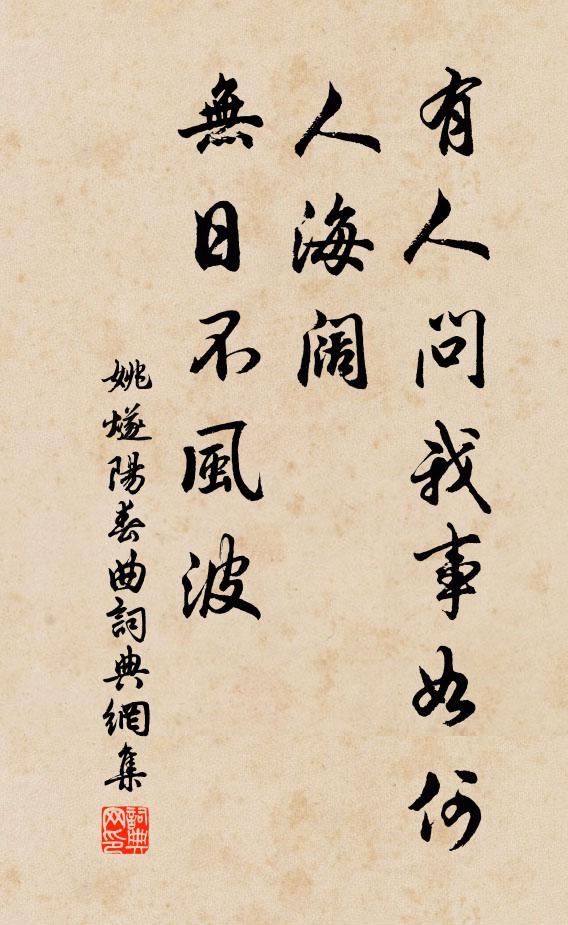 有人問我事如何
人海闊
無日不風波
姚燧陽春曲詞典網集
詞典网印